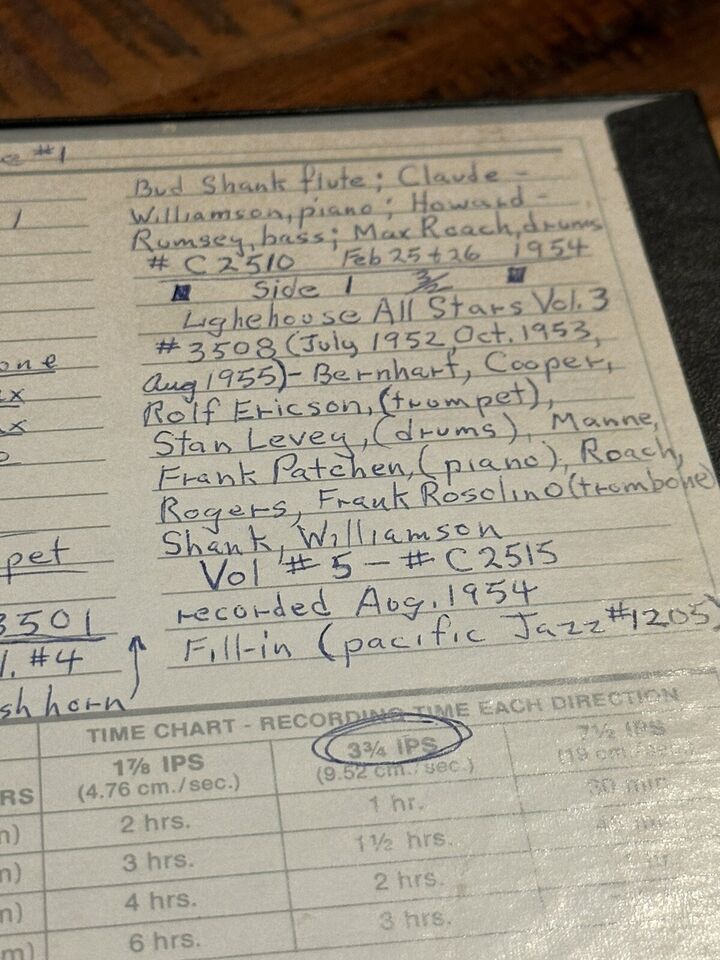 #1
Bud Shank flute; Claude -
Williamson, piano; Howard -
Rumsey, bass; Max Roach, drums
# C2510 Feb 25 + 26 1954
Side 1 3/2
Lighehouse All Stars Vol. 3
#3508 (July 1952, Oct. 1953,
Aug 1955) - Bernhart, Cooper,
Rolf Ericson, (trumpet),
Stan Levey, (drums), Manne,
Frank Patchen, (piano), Roach,
Rogers, Frank Rosolino (trombone)
Shank, Williamson
Vol #5 - # C2515
recorded Aug. 1954
Fill-in (pacific Jazz #1205)
one
pet
3501
#4
sh horn
TIME CHART - RECORDING TIME EACH DIRECTION
RS 1⅞ IPS 3¾ IPS 7½ IPS
(4.76 cm./sec.) (9.52 cm./sec.) (19 cm./sec.
m) 2 hrs. 1 hr. 30 min.
m) 3 hrs. 1½ hrs.
m) 4 hrs. 2 hrs.
m) 6 hrs. 3 hrs.